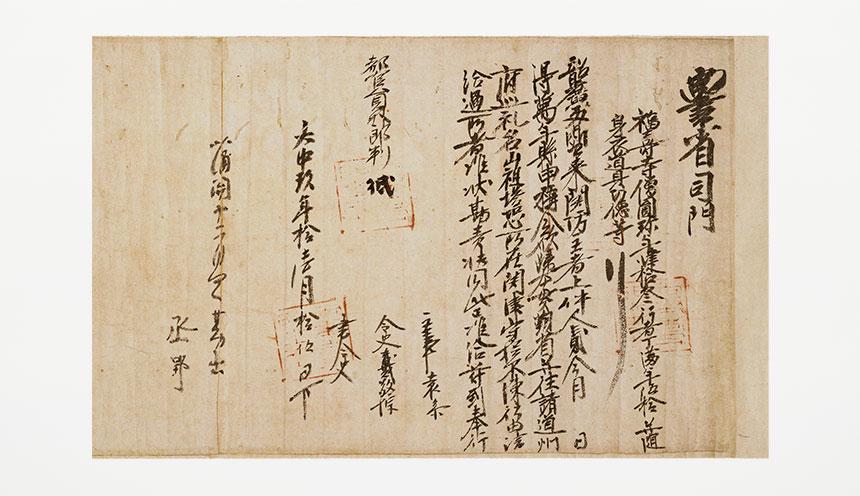 尚書省司門
福壽寺僧圓珎年肆拾參行者丁滿年伍拾并隨
身衣道具功德等
韶廣兩浙已來關防主者上件人貳今月 日
得萬年縣申稱今欲歸本貫覲省并往諸道州
府巡礼名山祖塔恐所在關津守捉不練行由請
給過所者准狀勘責狀同此正准給符到奉行
主事袁參
都官員外郎判祗
令史戴敬悰
書令史
大中玖年拾壹月拾伍日下
蒲關十二月四日勘出
丞郢